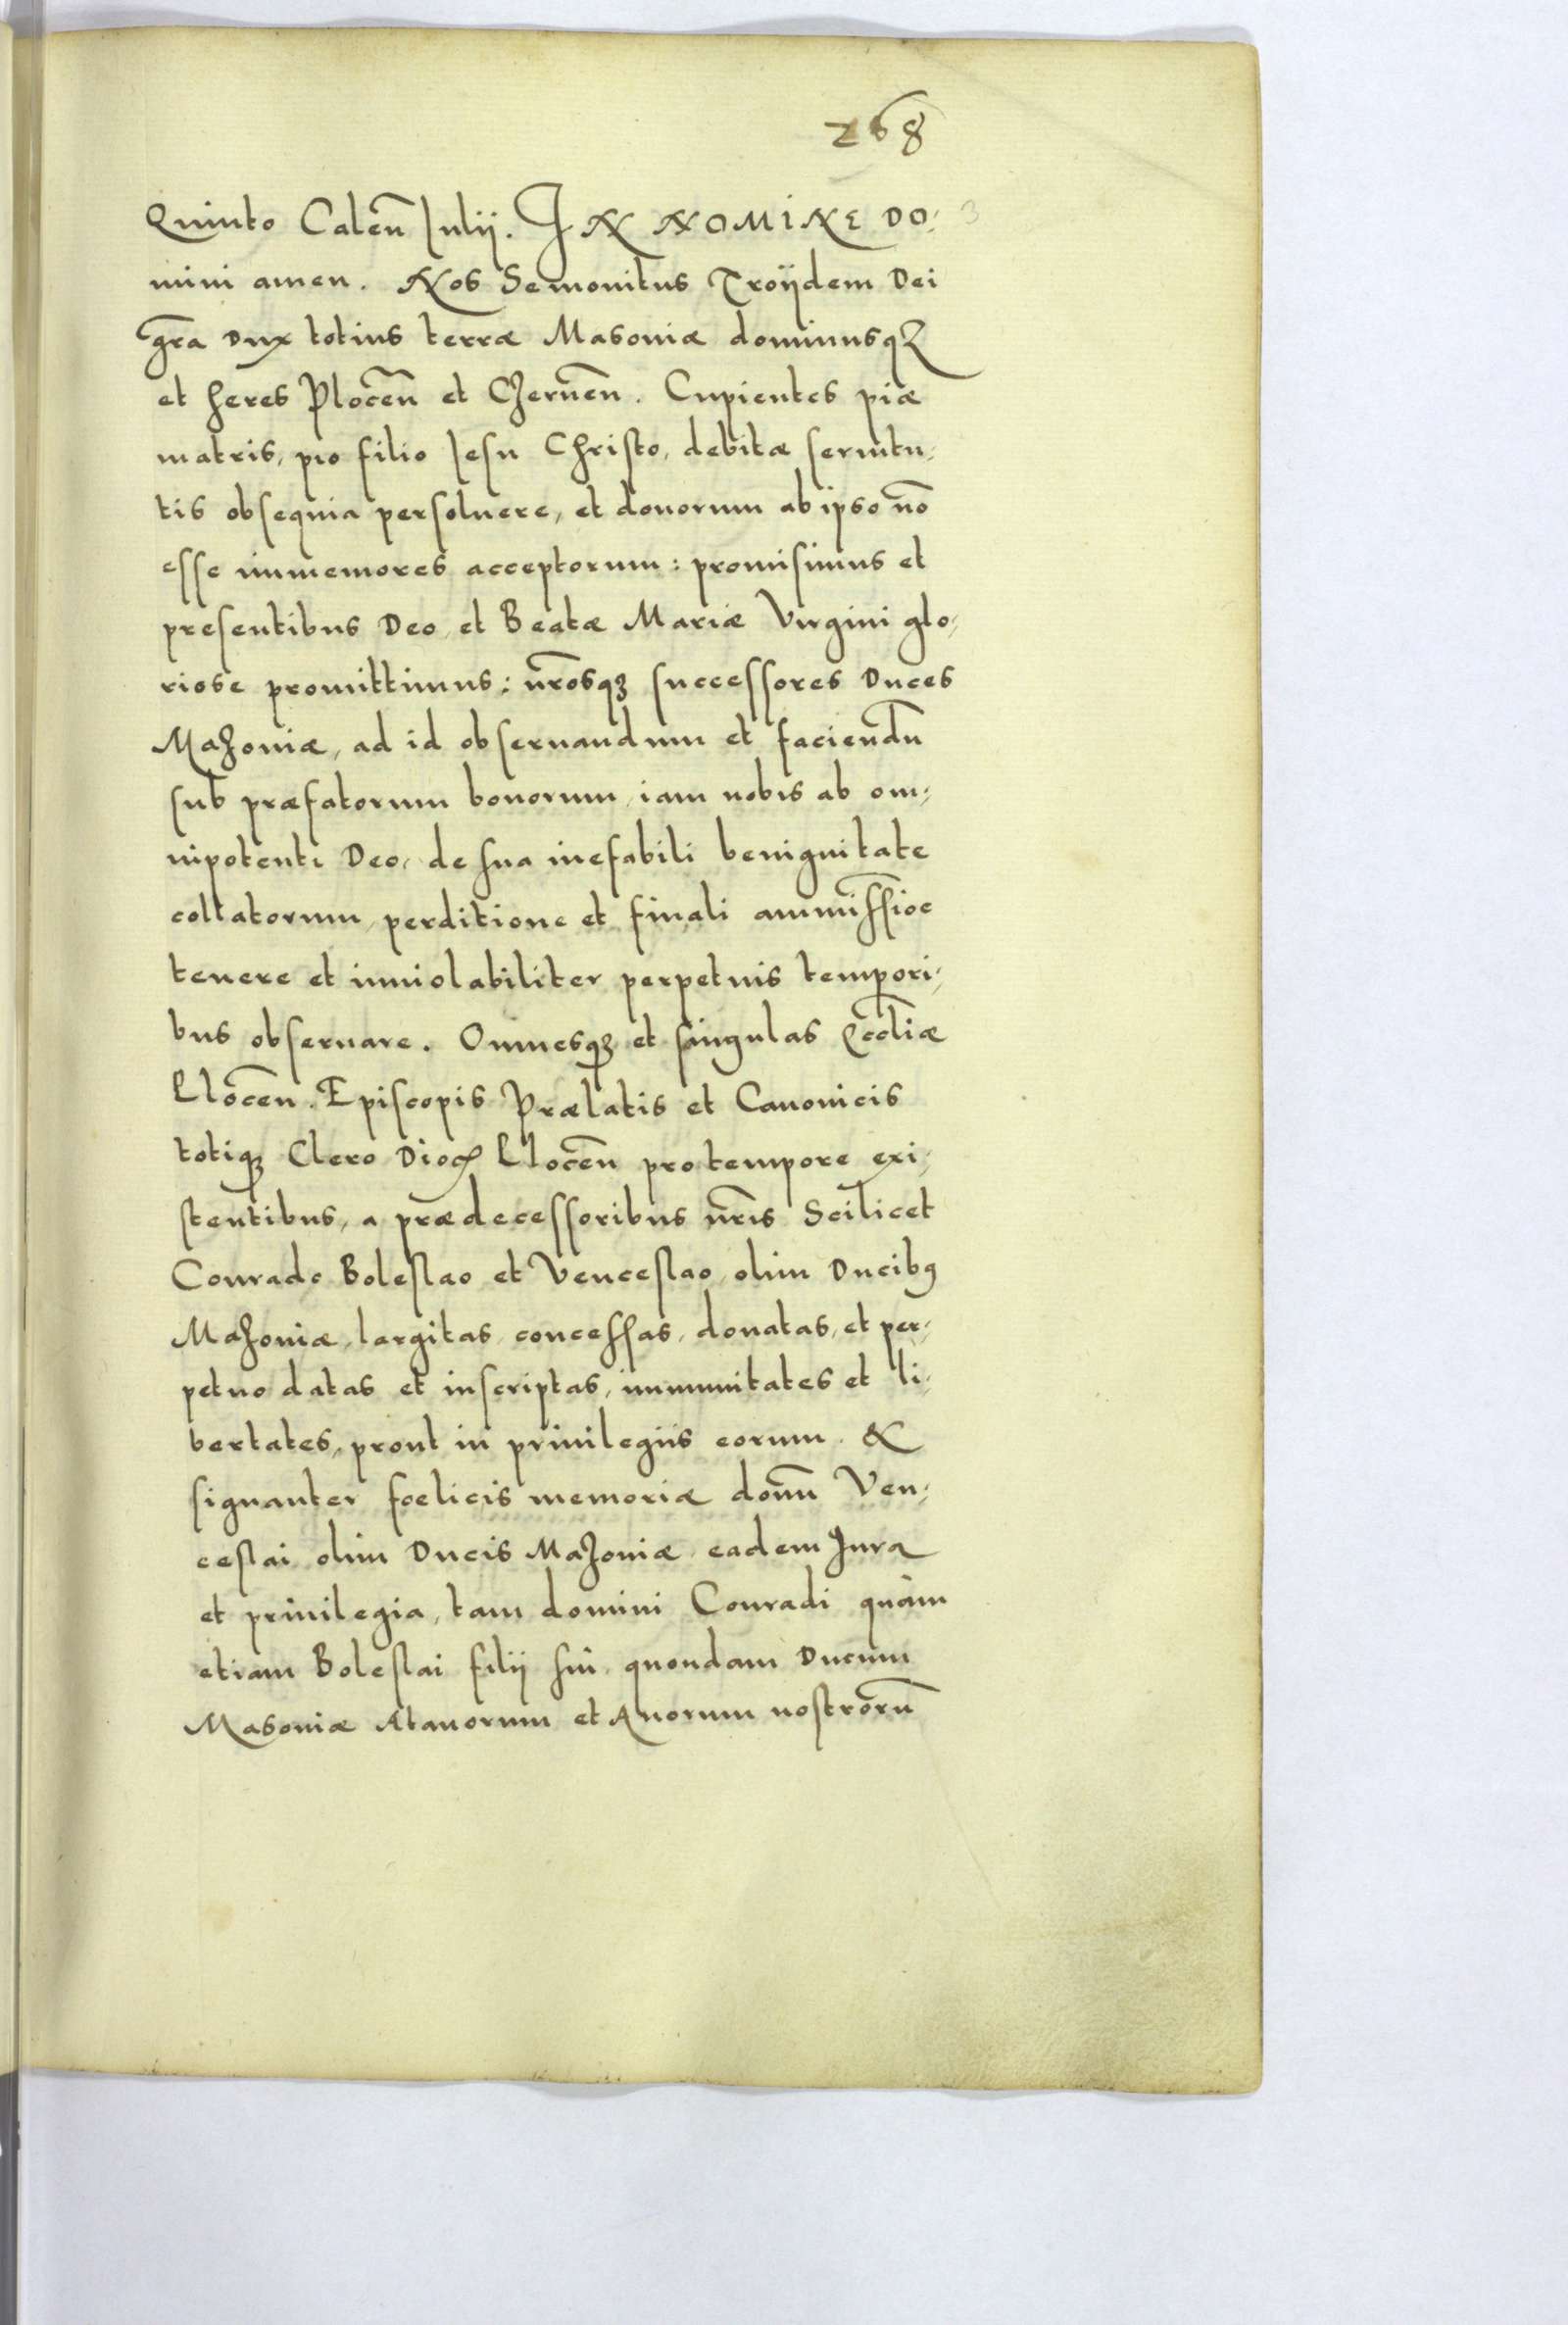 268
Quinto Caleñ Iulij. IN NOMINE DO- 3
mini amen. Nos Semouitus Troijdem Dei
gr̃a Dux totius terræ Masouiæ dominusqȝ
et heres Ploceñ et Czerneñ. Cupientes piæ
matris, pio filio Iesu Christo, debitæ seruitu-
tis obsequia persoluere, et donorum ab ipso nõ
esse immemores acceptorum: promisimus et
presentibus Deo, et Beatæ Mariæ Virgini glo-
riose promittimus: nr̃osqȝ successores Duces
Mazouiæ, ad id obseruandum et faciendũ
sub præfatorum bonorum, iam nobis ab om-
nipotenti Deo, de sua inefabili benignitate
collatorum, perditione et finali ammissiõe
tenere et inuiolabiliter perpetuis tempori-
bus obseruare. Omnesqȝ et singulas Eccl̃iæ
Ploceñ. Episcopis Prælatis et Canonicis
totiqȝ Clero Dioc̃ Ploceñ pro tempore exi-
stentibus, a prædecessoribus nr̃is Scilicet
Conrado Boleslao et Venceslao, olim Ducibꝰ
Mazouiæ, largitas, concessas, donatas, et per-
petuo datas et inscriptas, immunitates et li-
bertates, prout in priuilegiis eorum. &
signanter foelicis memoriæ domñ Ven-
ceslai olim Ducis Mazouiæ eadem Iura
et priuilegia, tam domini Conradi quàm
etiam Boleslai filij sui quondam Ducum
Masouiæ Atauorum et Auorum nostrorũ